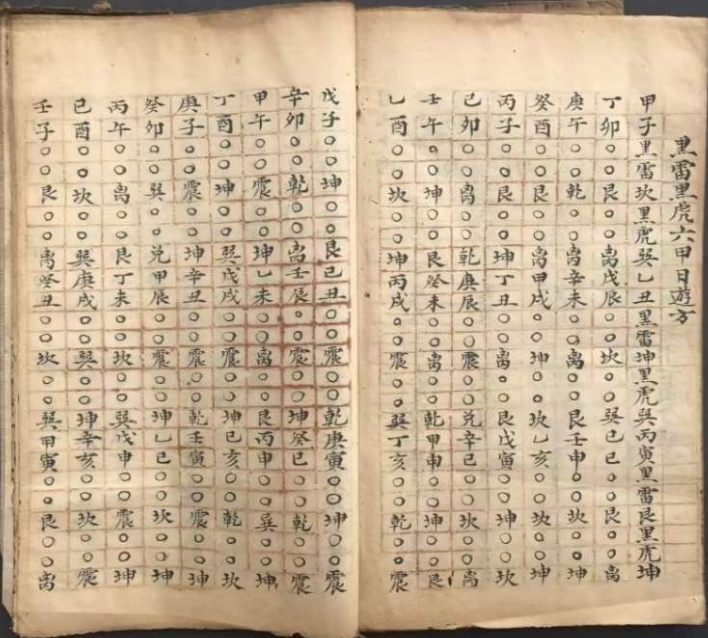 黑雷黑虎六甲日遊方
甲子黑雷坎黑虎巽乙丑黑雷坤黑虎巽丙寅黑雷艮黑虎坤
丁卯○○艮○○离戊辰○○坎○○巽己巳○○艮○○离
庚午○○乾○○离辛未○○离○○艮壬申○○坎○○坤
癸酉○○艮○○离甲戌○○坤○○坎乙亥○○坎○○坤
丙子○○艮○○坤丁丑○○离○○艮戊寅○○坤○○坎
己卯○○离○○乾庚辰○○震○○兑辛巳○○坎○○离
壬午○○坤○○艮癸未○○离○○乾甲申○○坤○○艮
乙酉○○坎○○坤丙戌○○震○○巽丁亥○○乾○○震
戊子○○坤○○艮己丑○○震○○乾庚寅○○坤○○震
辛卯○○乾○○离壬辰○○震○○坤癸巳○○乾○○震
甲午○○震○○坤乙未○○离○○艮丙申○○巽○○坤
丁酉○○坤○○巽戊戌○○震○○坤己亥○○乾○○坎
庚子○○震○○坤辛丑○○震○○乾壬寅○○震○○坤
癸卯○○巽○○兑甲辰○○震○○坤乙巳○○坎○○坤
丙午○○离○○艮丁未○○坎○○巽戊申○○震○○坤
己酉○○坎○○巽庚戌○○巽○○坤辛亥○○坎○○震
壬子○○艮○○离癸丑○○坎○○巽甲寅○○艮○○离